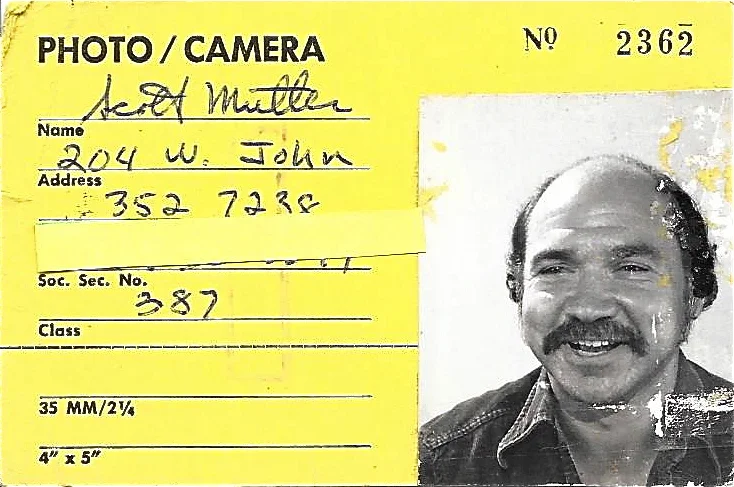 PHOTO / CAMERA
Nº 2362
Scott Mutter
Name
204 W. John
Address
352 7238
Soc. Sec. No.
387
Class
35 MM/2¼
4" x 5"